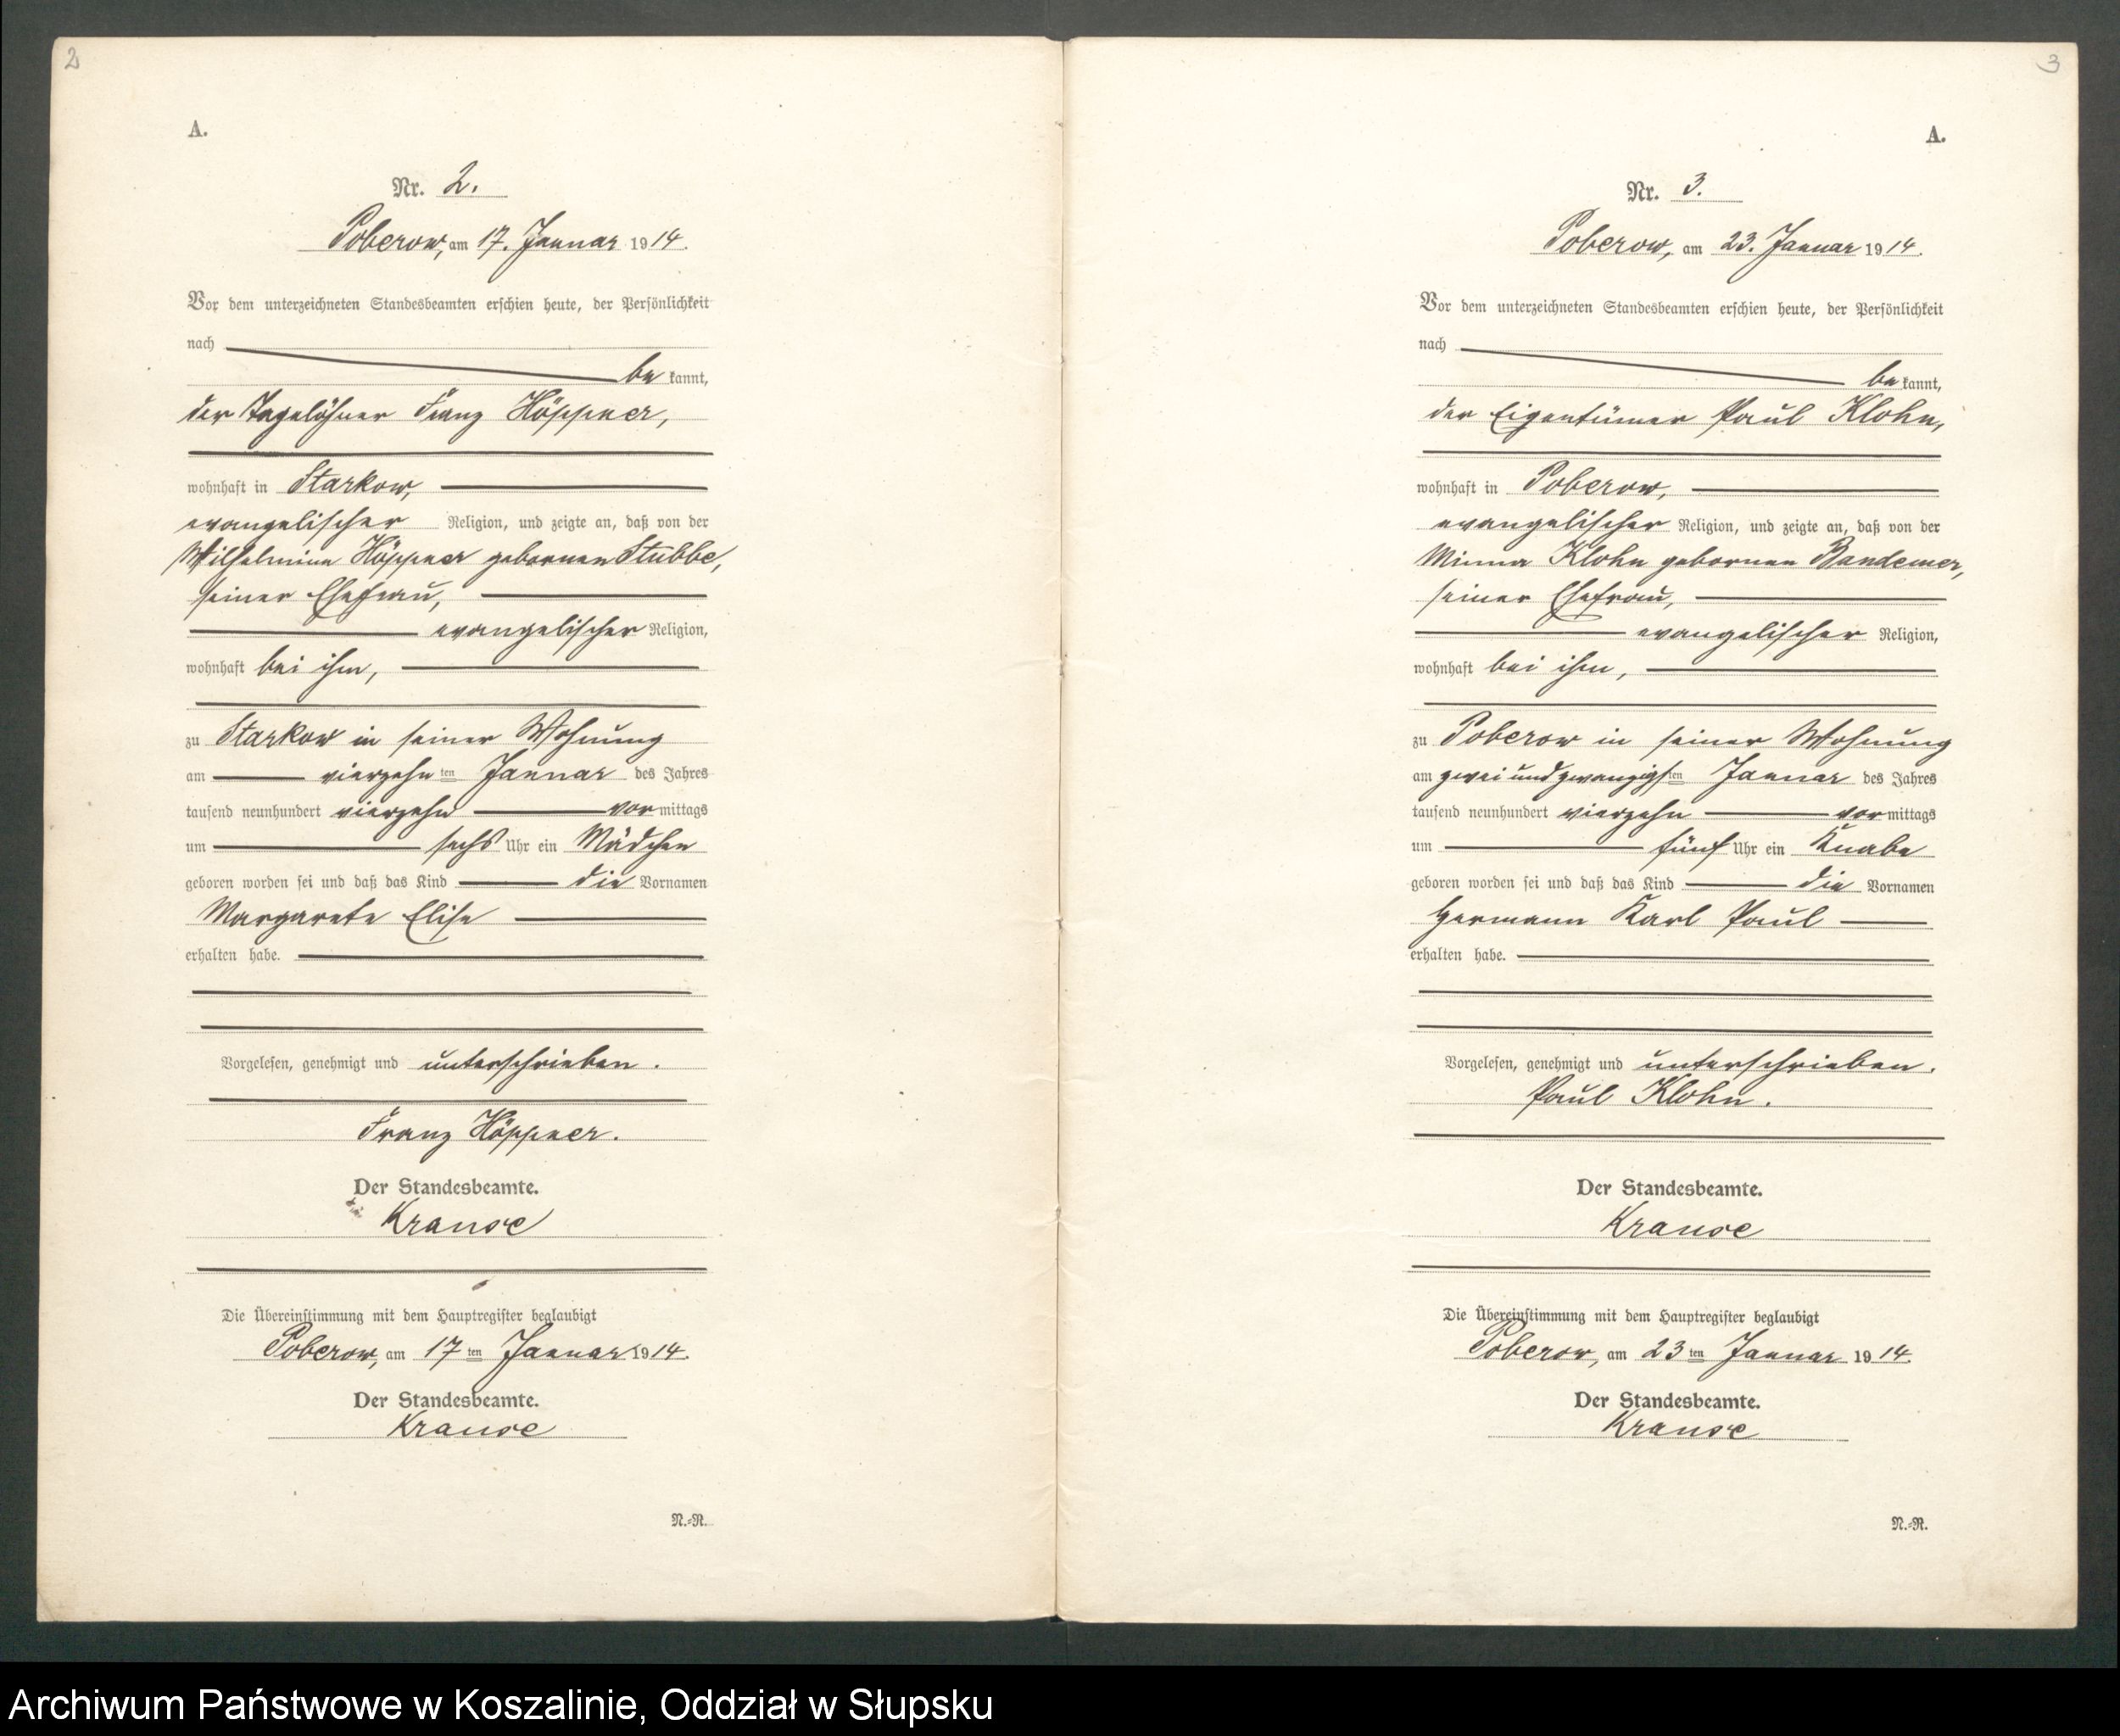 2
A.
Nr. 2.
Poberow, am 17. Januar 1914.
Vor dem unterzeichneten Standesbeamten erschien heute, der Persönlichkeit
nach
bekannt,
der Tagelöhner Franz Höppner,
wohnhaft in Starkow,
evangelischer Religion, und zeigte an, daß von der
Wilhelmine Höppner gebornen Stubbe,
seiner Ehefrau,
evangelischer Religion,
wohnhaft bei ihm,
zu Starkow in seiner Wohnung
am vierzehnten Januar des Jahres
tausend neunhundert vierzehn vormittags
um sechs Uhr ein Mädchen
geboren worden sei und daß das Kind die Vornamen
Margarete Elise
erhalten habe.
Vorgelesen, genehmigt und unterschrieben.
Franz Höppner.
Der Standesbeamte.
Krause
Die Übereinstimmung mit dem Hauptregister beglaubigt
Poberow, am 17ten Januar 1914.
Der Standesbeamte.
Krause
N.=R.
3
A.
Nr. 3.
Poberow, am 23. Januar 1914.
Vor dem unterzeichneten Standesbeamten erschien heute, der Persönlichkeit
nach
bekannt,
der Eigentümer Paul Klohn,
wohnhaft in Poberow,
evangelischer Religion, und zeigte an, daß von der
Minna Klohn gebornen Bandemer,
seiner Ehefrau,
evangelischer Religion,
wohnhaft bei ihm,
zu Poberow in seiner Wohnung
am zwei und zwanzigsten Januar des Jahres
tausend neunhundert vierzehn vormittags
um fünf Uhr ein Knabe
geboren worden sei und daß das Kind die Vornamen
Hermann Karl Paul
erhalten habe.
Vorgelesen, genehmigt und unterschrieben.
Paul Klohn.
Der Standesbeamte.
Krause
Die Übereinstimmung mit dem Hauptregister beglaubigt
Poberow, am 23ten Januar 1914.
Der Standesbeamte.
Krause
N.=R.
Archiwum Państwowe w Koszalinie, Oddział w Słupsku